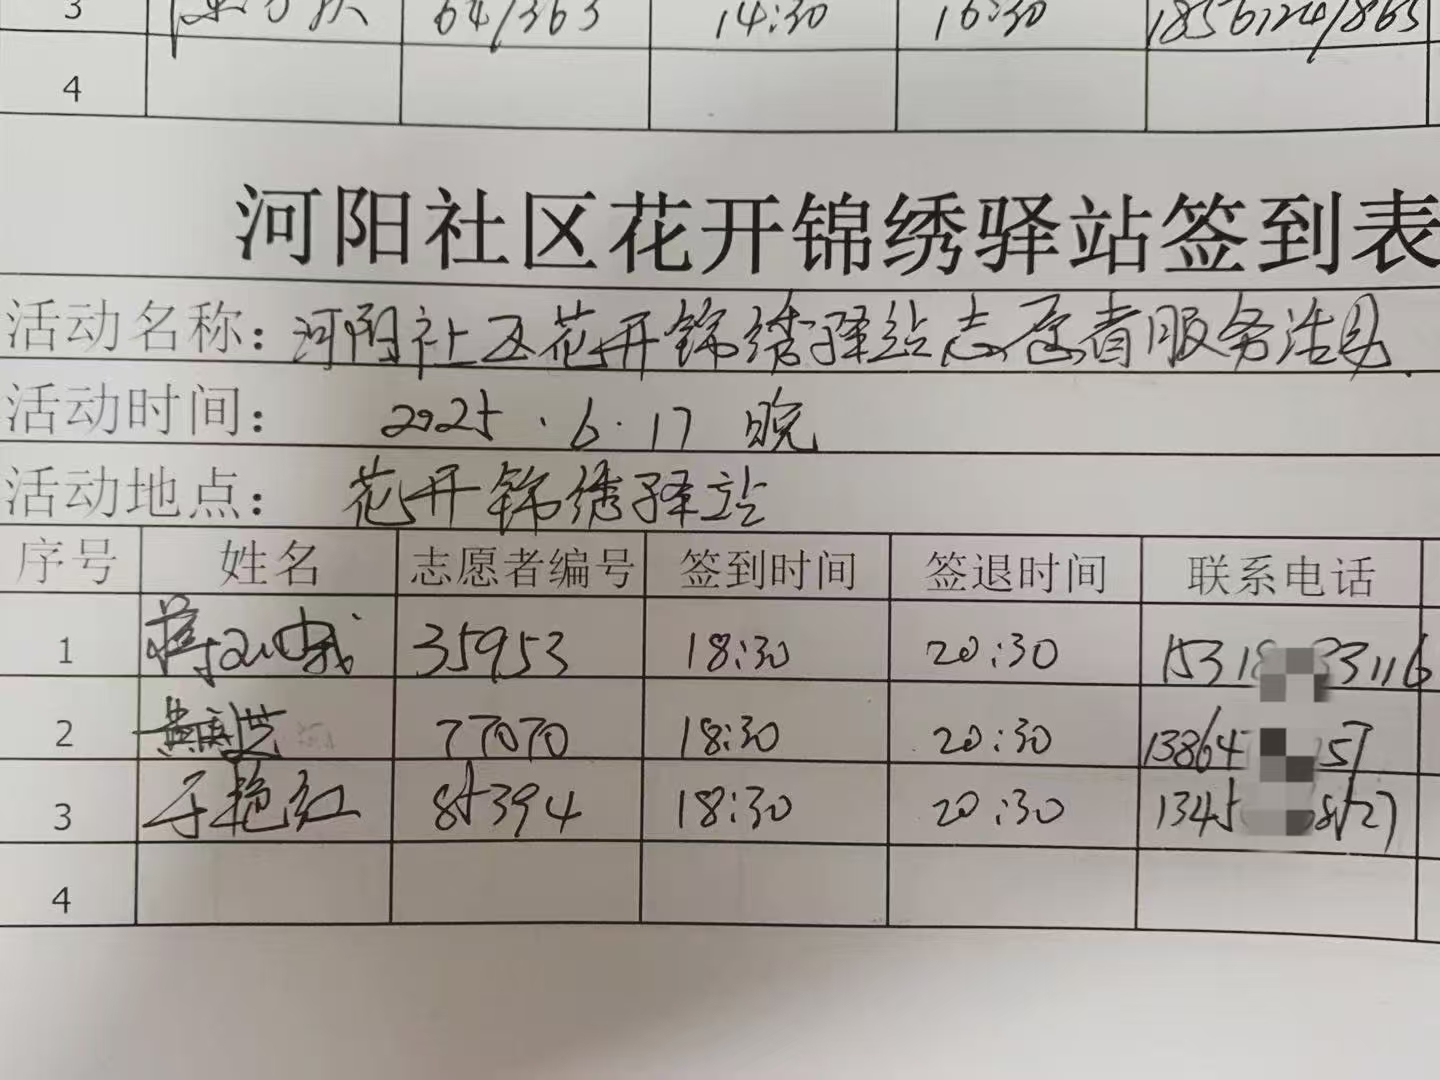 3 64/363 14:30 16:30
4
河阳社区花开锦绣驿站签到表
活动名称：河阳社区花开锦绣驿站志愿者服务活动.
活动时间： 2025.6.17 晚
活动地点： 花开锦绣驿站
序号 姓名 志愿者编号 签到时间 签退时间 联系电话
1 35953 18:30 20:30 1531 33116
2 77070 18:30 20:30 13864 57
3 于艳红 85394 18:30 20:30 1345 8527
4